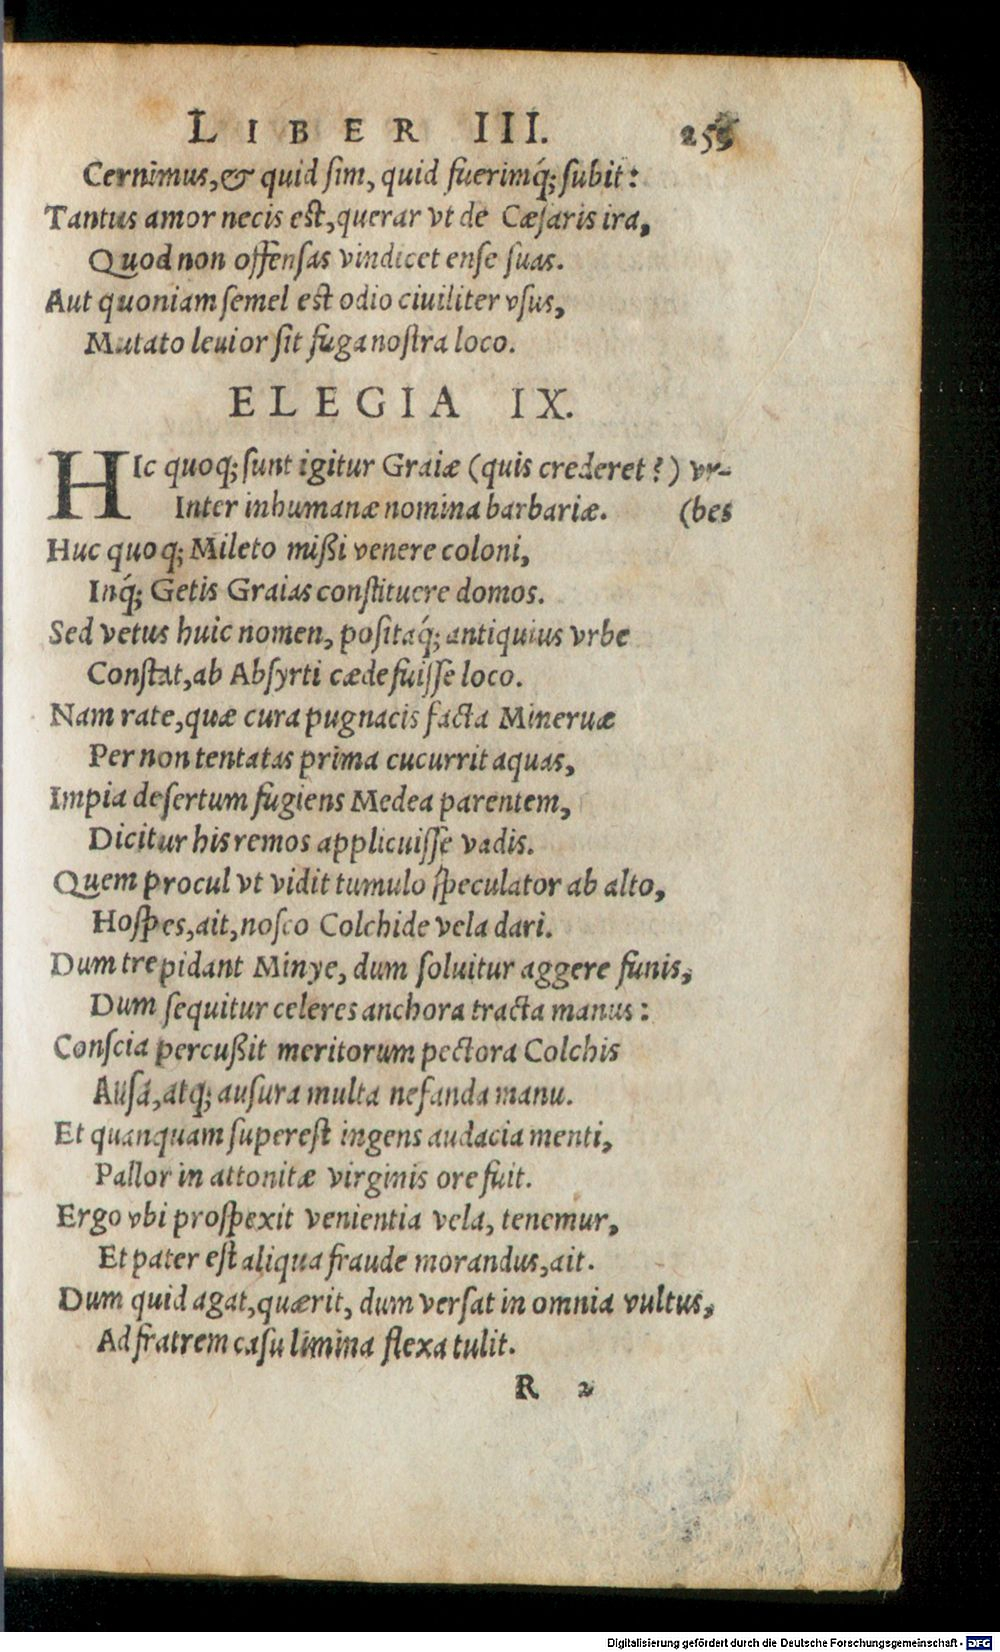 LIBER III. 255
Cernimus, & quid ſim, quid fuerimq́; ſubit:
Tantus amor necis eſt, querar vt de Cæſaris ira,
Quod non offenſas vindicet enſe ſuas.
Aut quoniam ſemel eſt odio ciuiliter vſus,
Mutato leuior ſit fuga noſtra loco.
ELEGIA IX.
HIc quoq; ſunt igitur Graiæ (quis crederet?) vr-
Inter inhumanæ nomina barbariæ. (bes
Huc quoq; Mileto mißi venere coloni,
Inq́; Getis Graias conſtituere domos.
Sed vetus huic nomen, poſitaq́; antiquius vrbe
Conſtat, ab Abſyrti cæde fuiſſe loco.
Nam rate, quæ cura pugnacis facta Mineruæ
Per non tentatas prima cucurrit aquas,
Impia deſertum fugiens Medea parentem,
Dicitur his remos applicuiſſe vadis.
Quem procul vt vidit tumulo ſpeculator ab alto,
Hoſpes, ait, noſco Colchide vela dari.
Dum trepidant Minye, dum ſoluitur aggere funis,
Dum ſequitur celeres anchora tracta manus:
Conſcia percußit meritorum pectora Colchis
Auſa, atq; auſura multa nefanda manu.
Et quanquam ſupereſt ingens audacia menti,
Pallor in attonitæ virginis ore fuit.
Ergo vbi proſpexit venientia vela, tenemur,
Et pater eſt aliqua fraude morandus, ait.
Dum quid agat, quærit, dum verſat in omnia vultus,
Ad fratrem caſu limina flexa tulit.
R 2
Digitalisierung gefördert durch die Deutsche Forschungsgemeinschaft - DFG